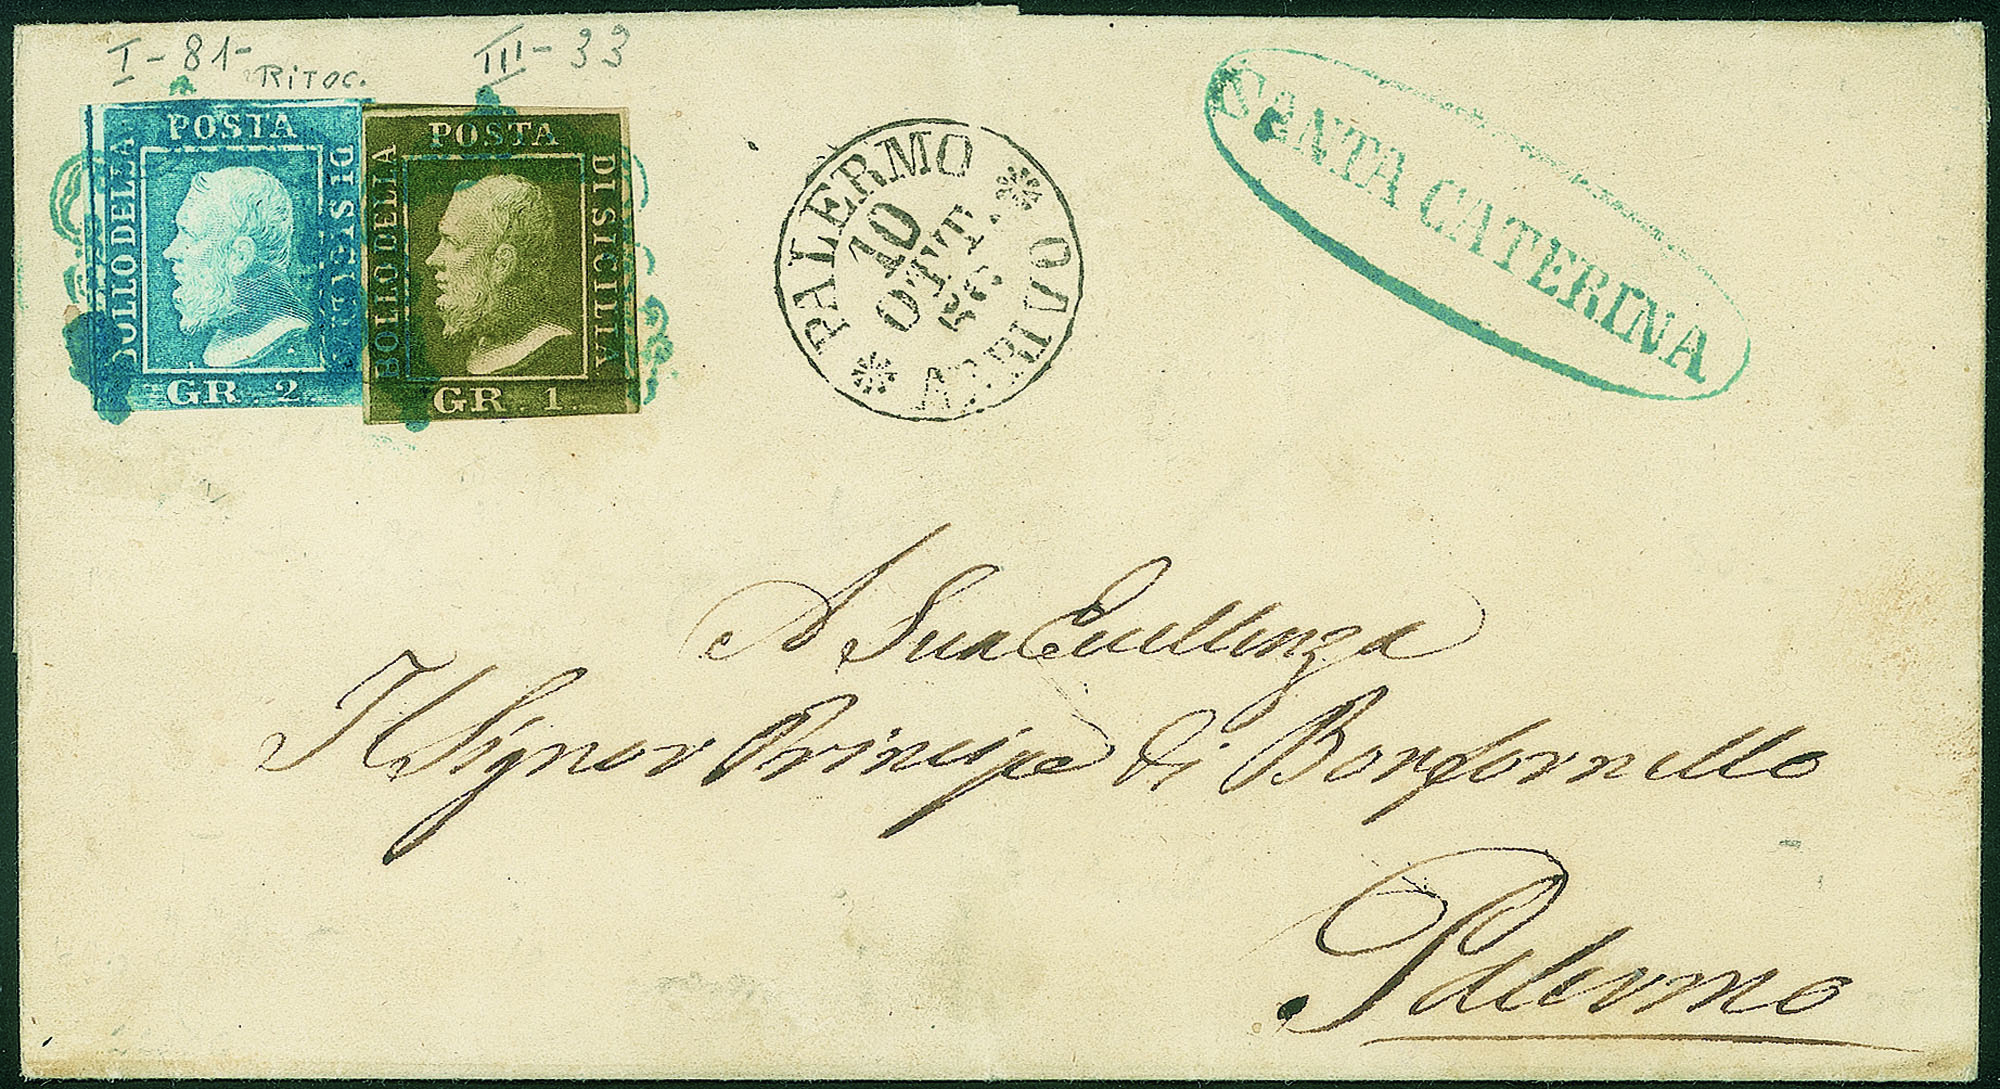 I-81- RITOC. III-33
BOLLO DELLA POSTA DI SICILIA
GR. 2.
BOLLO DELLA POSTA DI SICILIA
GR. 1.
PALERMO
ARRIVO
10
OTT.
SANTA CATERINA
A Sua Eccellenza
Il Signor Principe di Bonfornello
Palermo